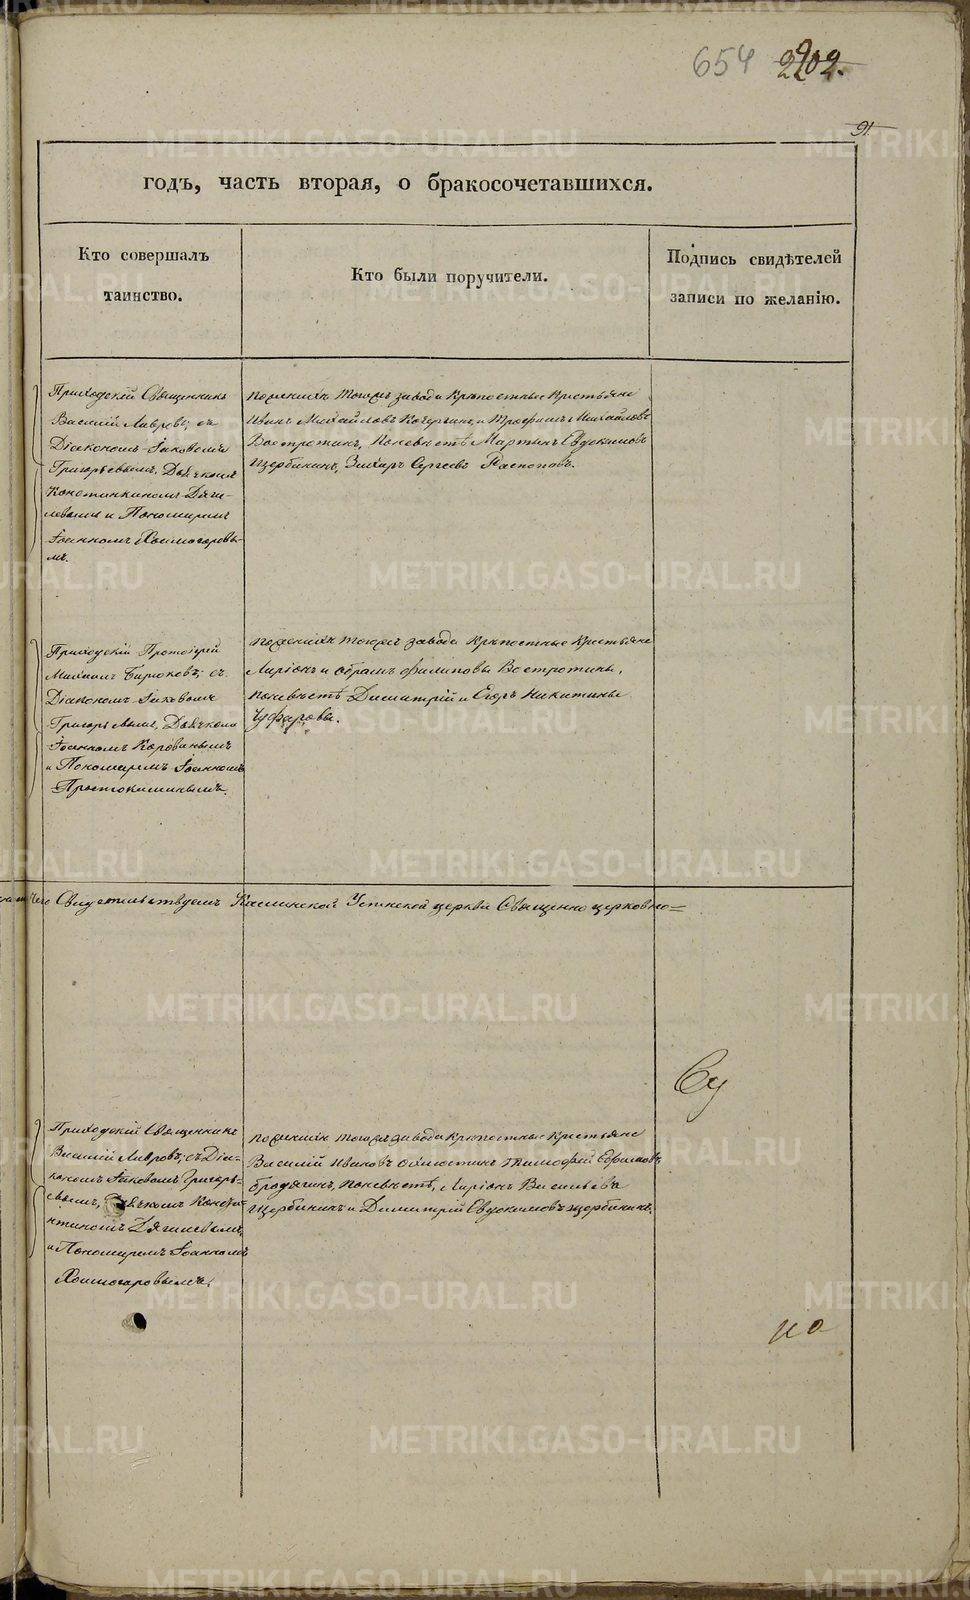 654 2202.
91.
годъ, часть вторая, о бракосочетавшихся.
Кто совершалъ
таинство.
Кто были поручители.
Подпись свидѣтелей
записи по желанію.
Приходскій Священникъ
Василій Лавровъ, съ
Діакономъ Іаковомъ
Григорьевымъ, Дьячкомъ
Константиномъ Дяги-
левымъ и Пономаремъ
Іоанномъ Холмогоровы-
мъ.
по женихѣ тогожъ завода Крѣпостные Крестьяне
Иванъ Михайловъ и Трофимъ Михайловъ
Востротинъ, по невѣстѣ Мартынъ Евдокимовъ
Щербининъ, Захаръ Сергѣевъ Распоповъ.
Приходскій Протоіерей
Михаилъ Бирюковъ, съ
Діакономъ Іаковомъ
Григорьевымъ, Дьячкомъ
Іоанномъ
и Пономаремъ Іоанномъ
по женихѣ тогожъ завода Крѣпостные Крестьяне
Ларіонъ и Филиповы Востротины,
по невѣстѣ Димитрій и Егоръ Никитины
Чуфаровы.
чего Свидетельствуемъ Каслинской Успенской церкви Священно церковно=
Су
Приходскій Священникъ
Василій Лавровъ, съ Діа-
кономъ Іаковомъ Григорь-
евымъ, Дьячкомъ Конста-
нтиномъ Дягилевымъ,
и Пономаремъ Іоанномъ
Холмогоровымъ.
по женихѣ тогожъ завода Крѣпостные Крестьяне
Василій Ивановъ Тимофей Ефимовъ
бродягинъ, по невѣстѣ, Ларіонъ Васильевъ
Щербининъ и Димитрій Евдокимовъ щербининъ.
на
METRIKI.GASO-URAL.RU